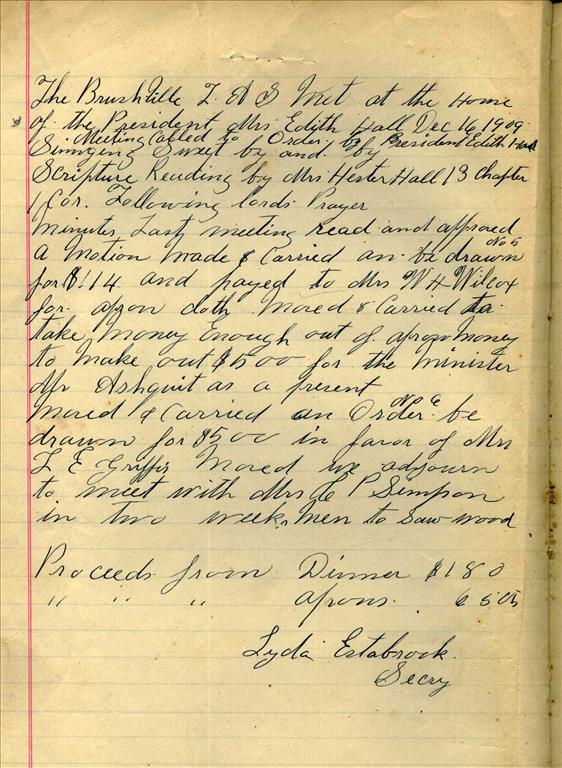 The Brushville L. A S Met at the Home
of the President Mrs Edith Hall Dec 16 1909
Meeting Called to Order by President Edith Hall
Singing Sweet by and by
Scripture Reading by Mrs Hester Hall 13 Chapter
1 Cor. Following lords Prayer
Minutes Last meeting read and approved
No 5
a Motion Made & Carried an be drawn
for $1.14 and payed to Mrs W H Wilcox
for apron cloth Moved & Carried to
take Money Enough out of apron money
to make out $5 00 for the Minister
Mr as a present
No 6
Moved & Carried an Order be
drawn for $5 00 in favor of Mrs
L E Moved we adjourn
to meet with Mrs C P Simpson
in two weeks, men to Saw wood
Proceeds from Dinner $1 80
" " " aprons.
Lyda Estabrook.
Secry